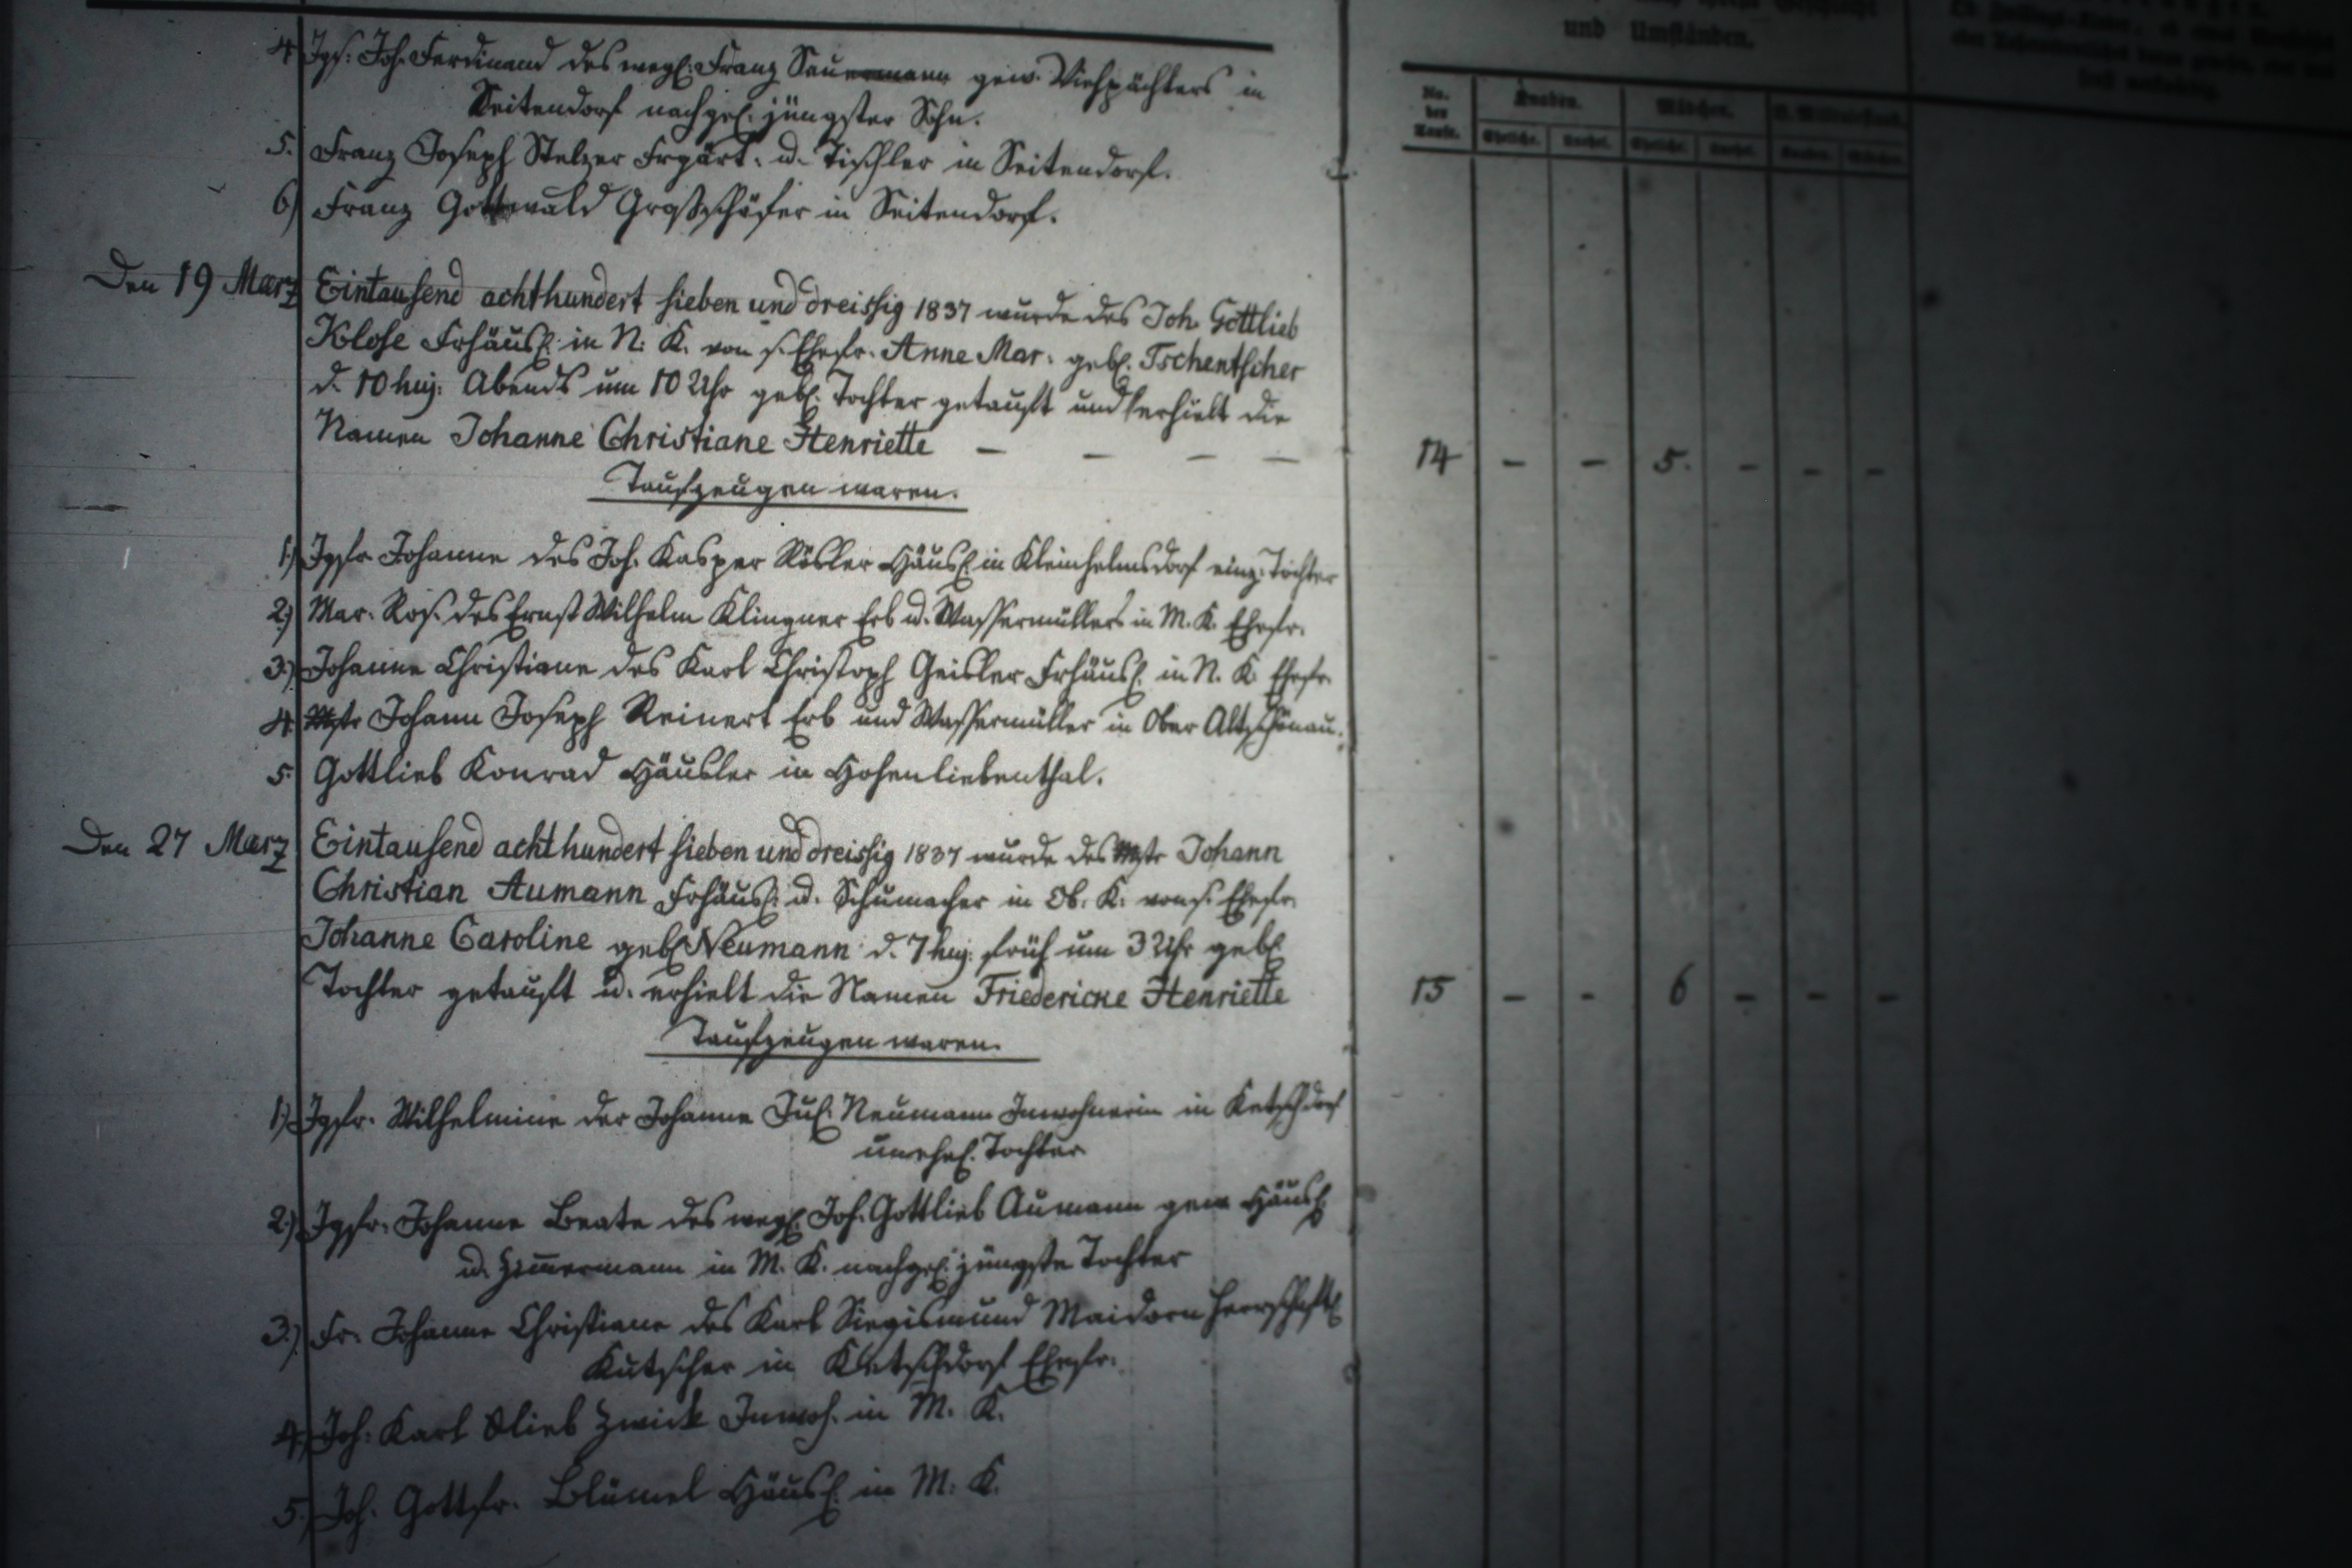 4. Jgs. Joh. Ferdinand des wegl. Franz Sauermann gew. Viehpächters in
Seitendorf nachgel. jüngster Sohn.
5. Franz Joseph Stelzer Frgärt. u. Tischler in Seitendorf.
6) Franz Gottwald Großschäfer in Seitendorf.
und Umständen.
No. der Taufe. Knaben. Mädchen.
Eheliche. Unehel. Eheliche. Unehel. Knaben. Mädchen.
Den 19 Marz Eintausend achthundert sieben und dreissig 1837 wurde des Joh. Gottlieb
Klose Frhäusl. in N. K. von s. Ehefr. Anne Mar. geb. Tschentscher
d. 10 huj. Abends um 10 Uhr geb. Tochter getauft und erhielt die
Namen Johanne Christiane Henriette — — — — 14 – – 5. – – –
Taufzeugen waren.
1.) Jgfr. Johanne des Joh. Kasper Rösler Häusl. in Kleinhelmsdorf einz. Tochter
2.) Mar. Ros. des Ernst Wilhelm Klingner Erb u. Wassermüllers in M. K. Ehefr.
3.) Johanne Christiane des Karl Christoph Geisler Frhäusl. in N. K. Ehefr.
4. Mstr Johann Joseph Reinert Erb und Wassermüller in Ober Altschönau.
5. Gottlieb Konrad Häusler in Hohenliebenthal.
Den 27 Marz Eintausend achthundert sieben und dreissig 1837 wurde des Mstr Johann
Christian Aumann Frhäusl. u. Schumacher in Ob. K. von s. Ehefr.
Johanne Caroline geb. Neumann d. 7 huj. früh um 3 Uhr geb.
Tochter getauft u. erhielt die Namen Friedericke Henriette 15 – – 6 – – –
Taufzeugen waren.
1.) Jgfr. Wilhelmine der Johanne Jul. Neumann Inwohnerin in Ketschdorf
unehel. Tochter
2.) Jgfr. Johanne Beate des wegl. Joh. Gottlieb Aumann gew Häusl.
u. Zimmermann in M. K. nachgel. jüngste Tochter
3.) Fr. Johanne Christiane des Karl Siegismund Maidorn herrschaftl.
Kutscher in Ketschdorf Ehefr.
4.) Joh. Karl Glieb Zwick Inwoh. in M. K.
5.) Joh. Gottfr. Blümel Häusl. in M. K.